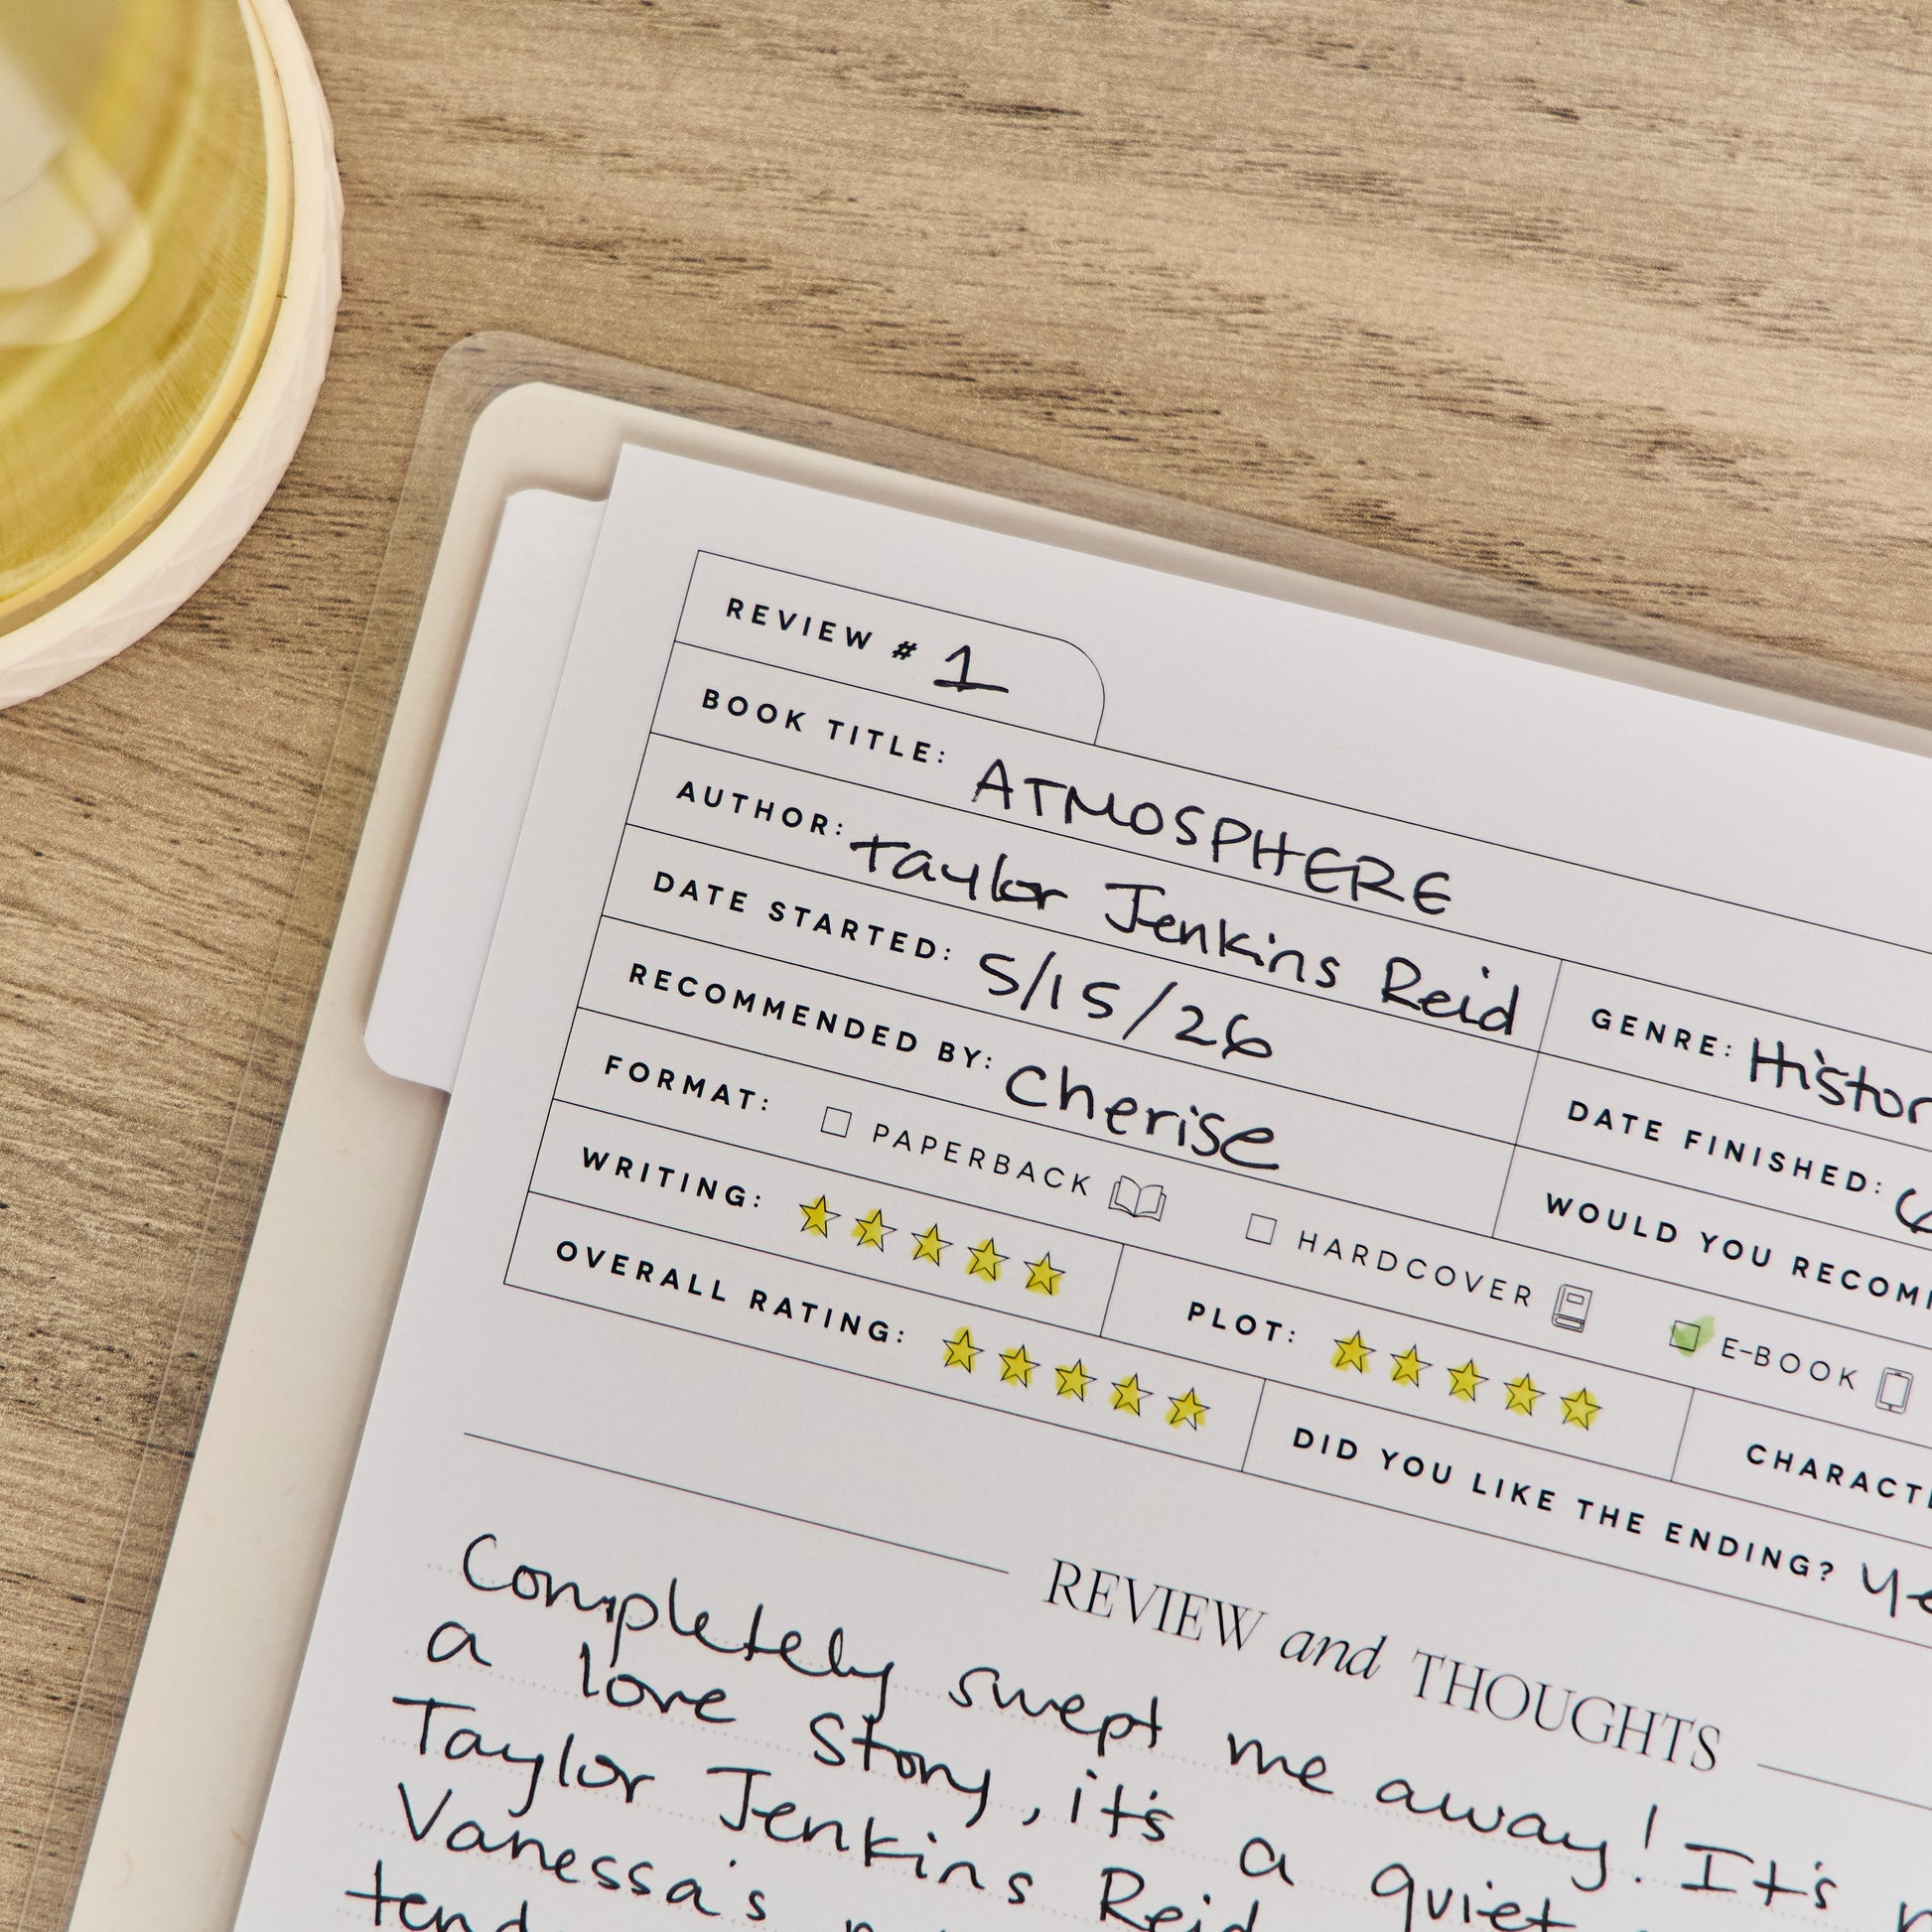 REVIEW # 1
BOOK TITLE: ATMOSPHERE
AUTHOR: Taylor Jenkins Reid GENRE:
DATE STARTED: 5/15/26 DATE FINISHED:
RECOMMENDED BY: Cherise WOULD YOU
FORMAT: PAPERBACK HARDCOVER E-BOOK
WRITING: PLOT:
OVERALL RATING: DID YOU LIKE THE ENDING?
REVIEW and THOUGHTS
Completely swept me away! It's
a love story, it's a quiet
Taylor Jenkins Reid
Vanessa's